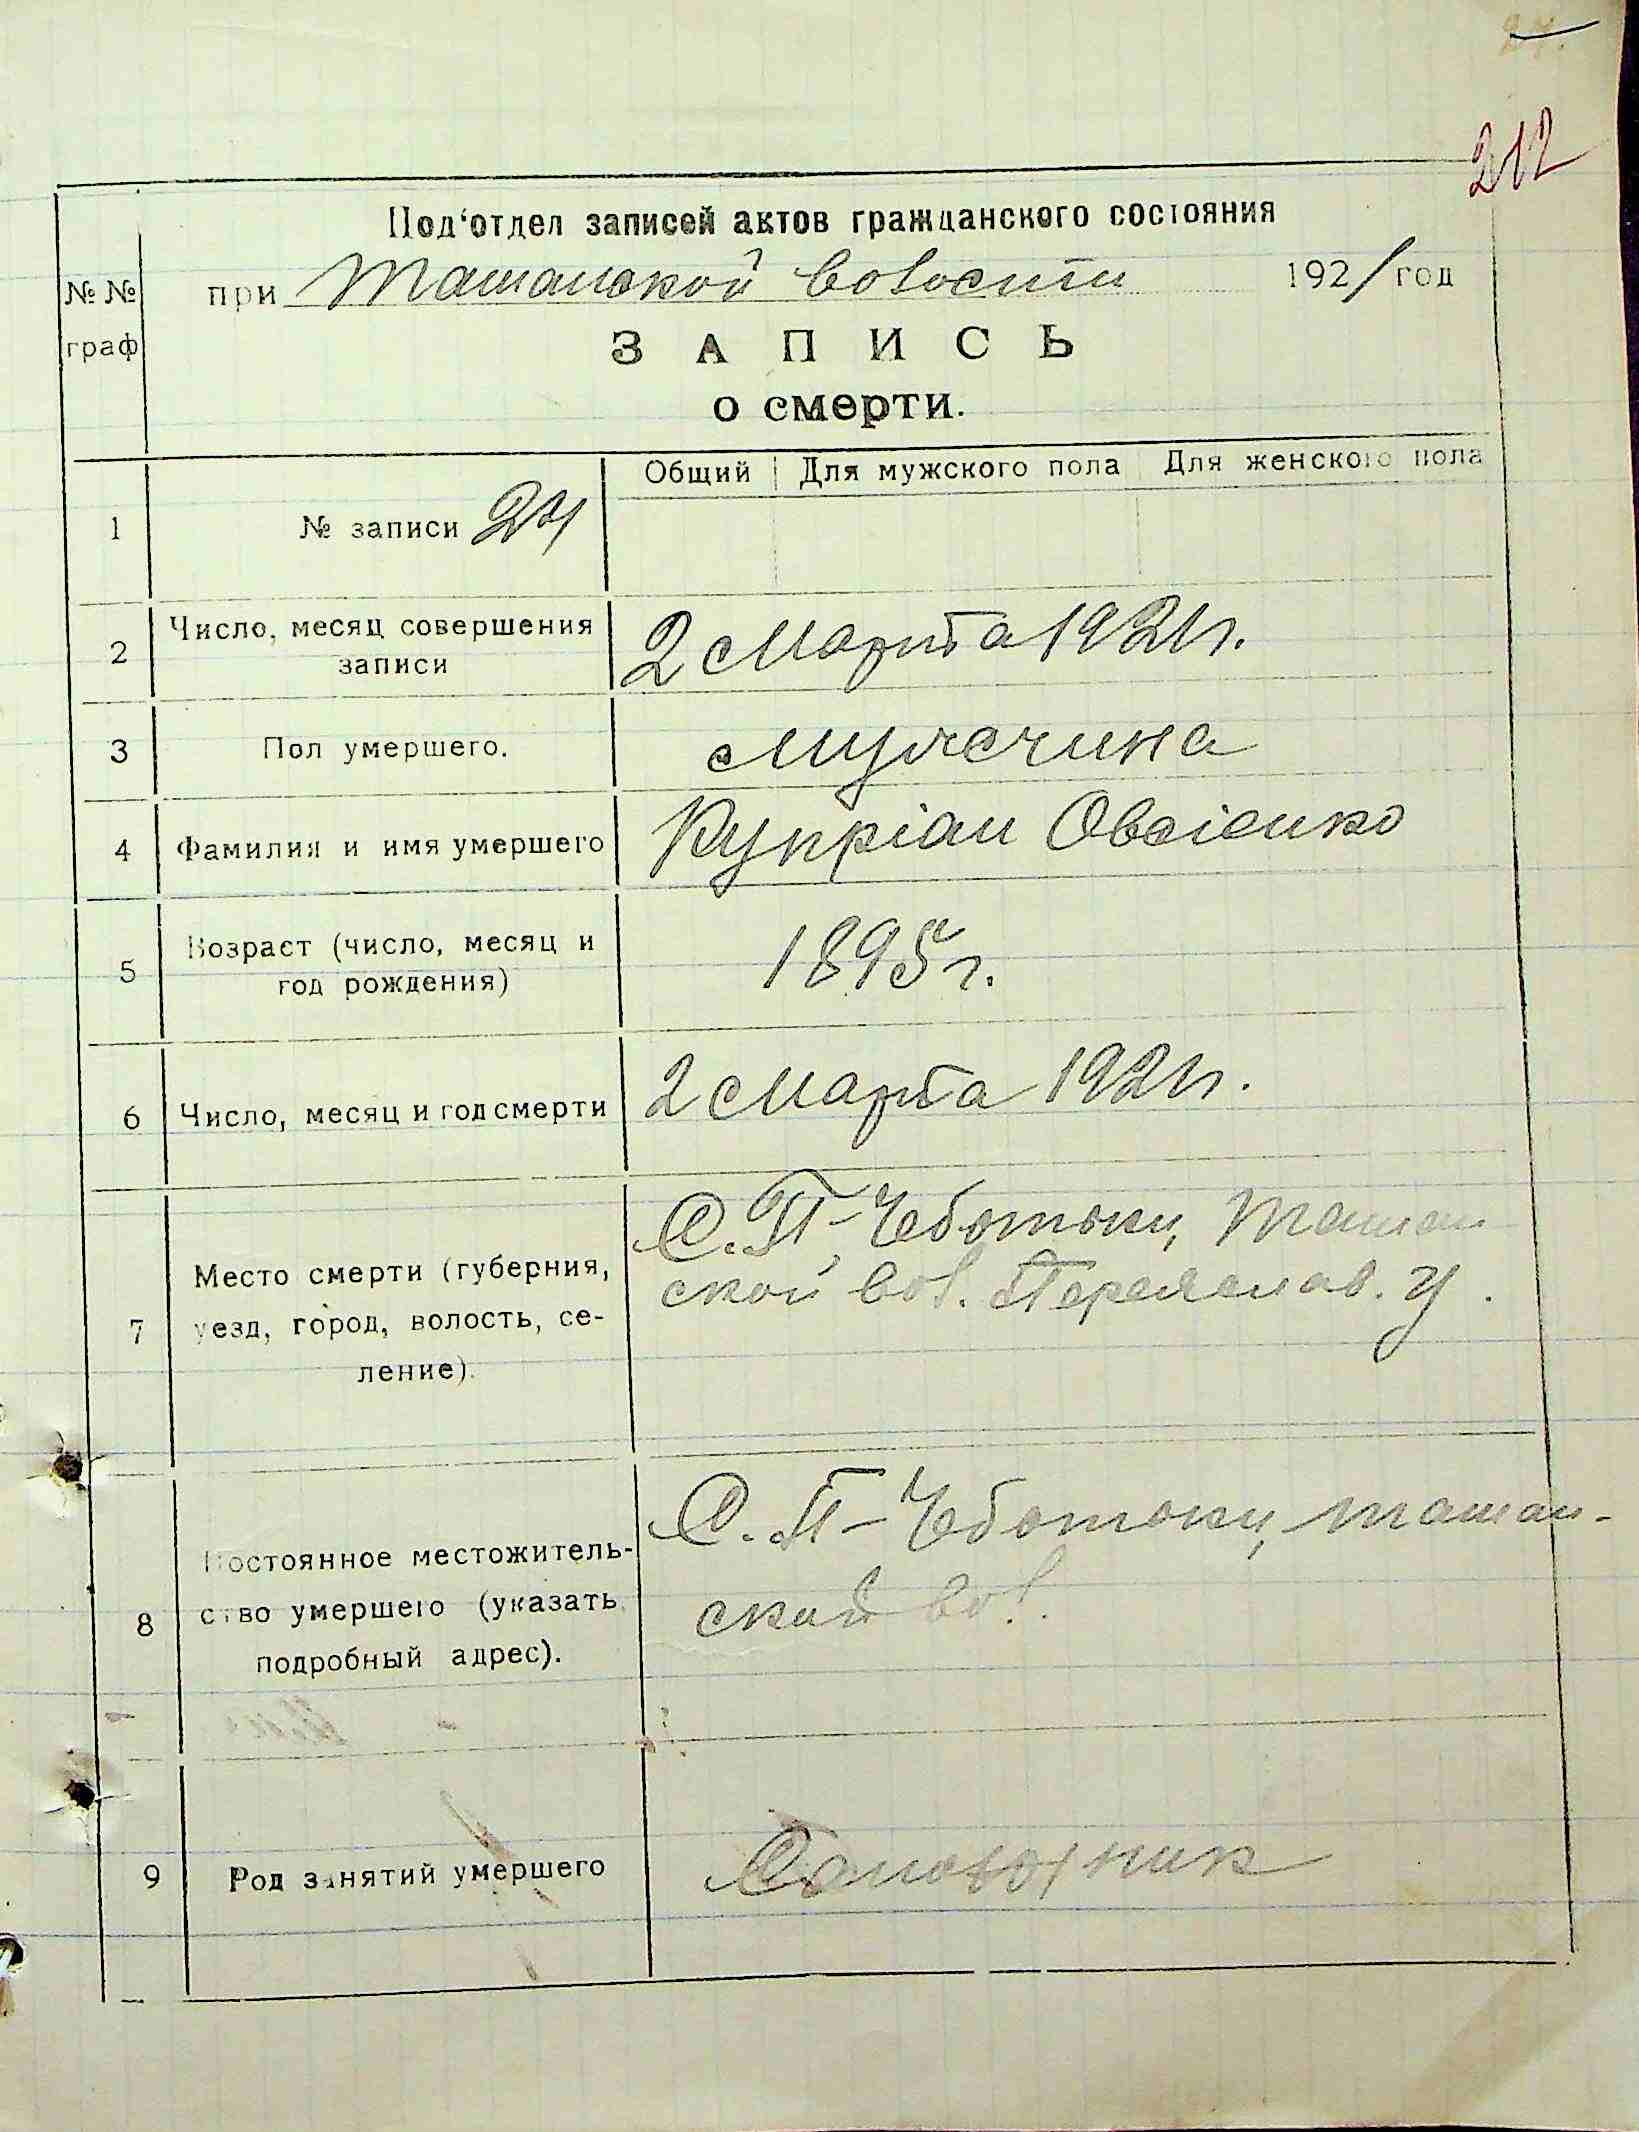 212
Под‘отдел записей актов гражданского состояния
№ №
граф
при Ташанской волости 1921 год
ЗАПИСЬ
о смерти.
Общий Для мужского пола Для женского пола
1 № записи 24
2 Число, месяц совершения
записи
2 Марта 1921 г.
3 Пол умершего.
Мужчина
4 Фамилия и имя умершего
Купріан Овсіенко
5 Возраст (число, месяц и
год рождения)
1895 г.
6 Число, месяц и год смерти
2 Марта 1921 г.
7 Место смерти (губерния,
уезд, город, волость, се-
ление).
С. П-Чботьки, Ташан
ской вол. Переяслав. у.
8 Постоянное местожитель-
ство умершего (указать
подробный адрес).
С. П-Чботьки, Ташан-
ской вол.
9 Род занятий умершего